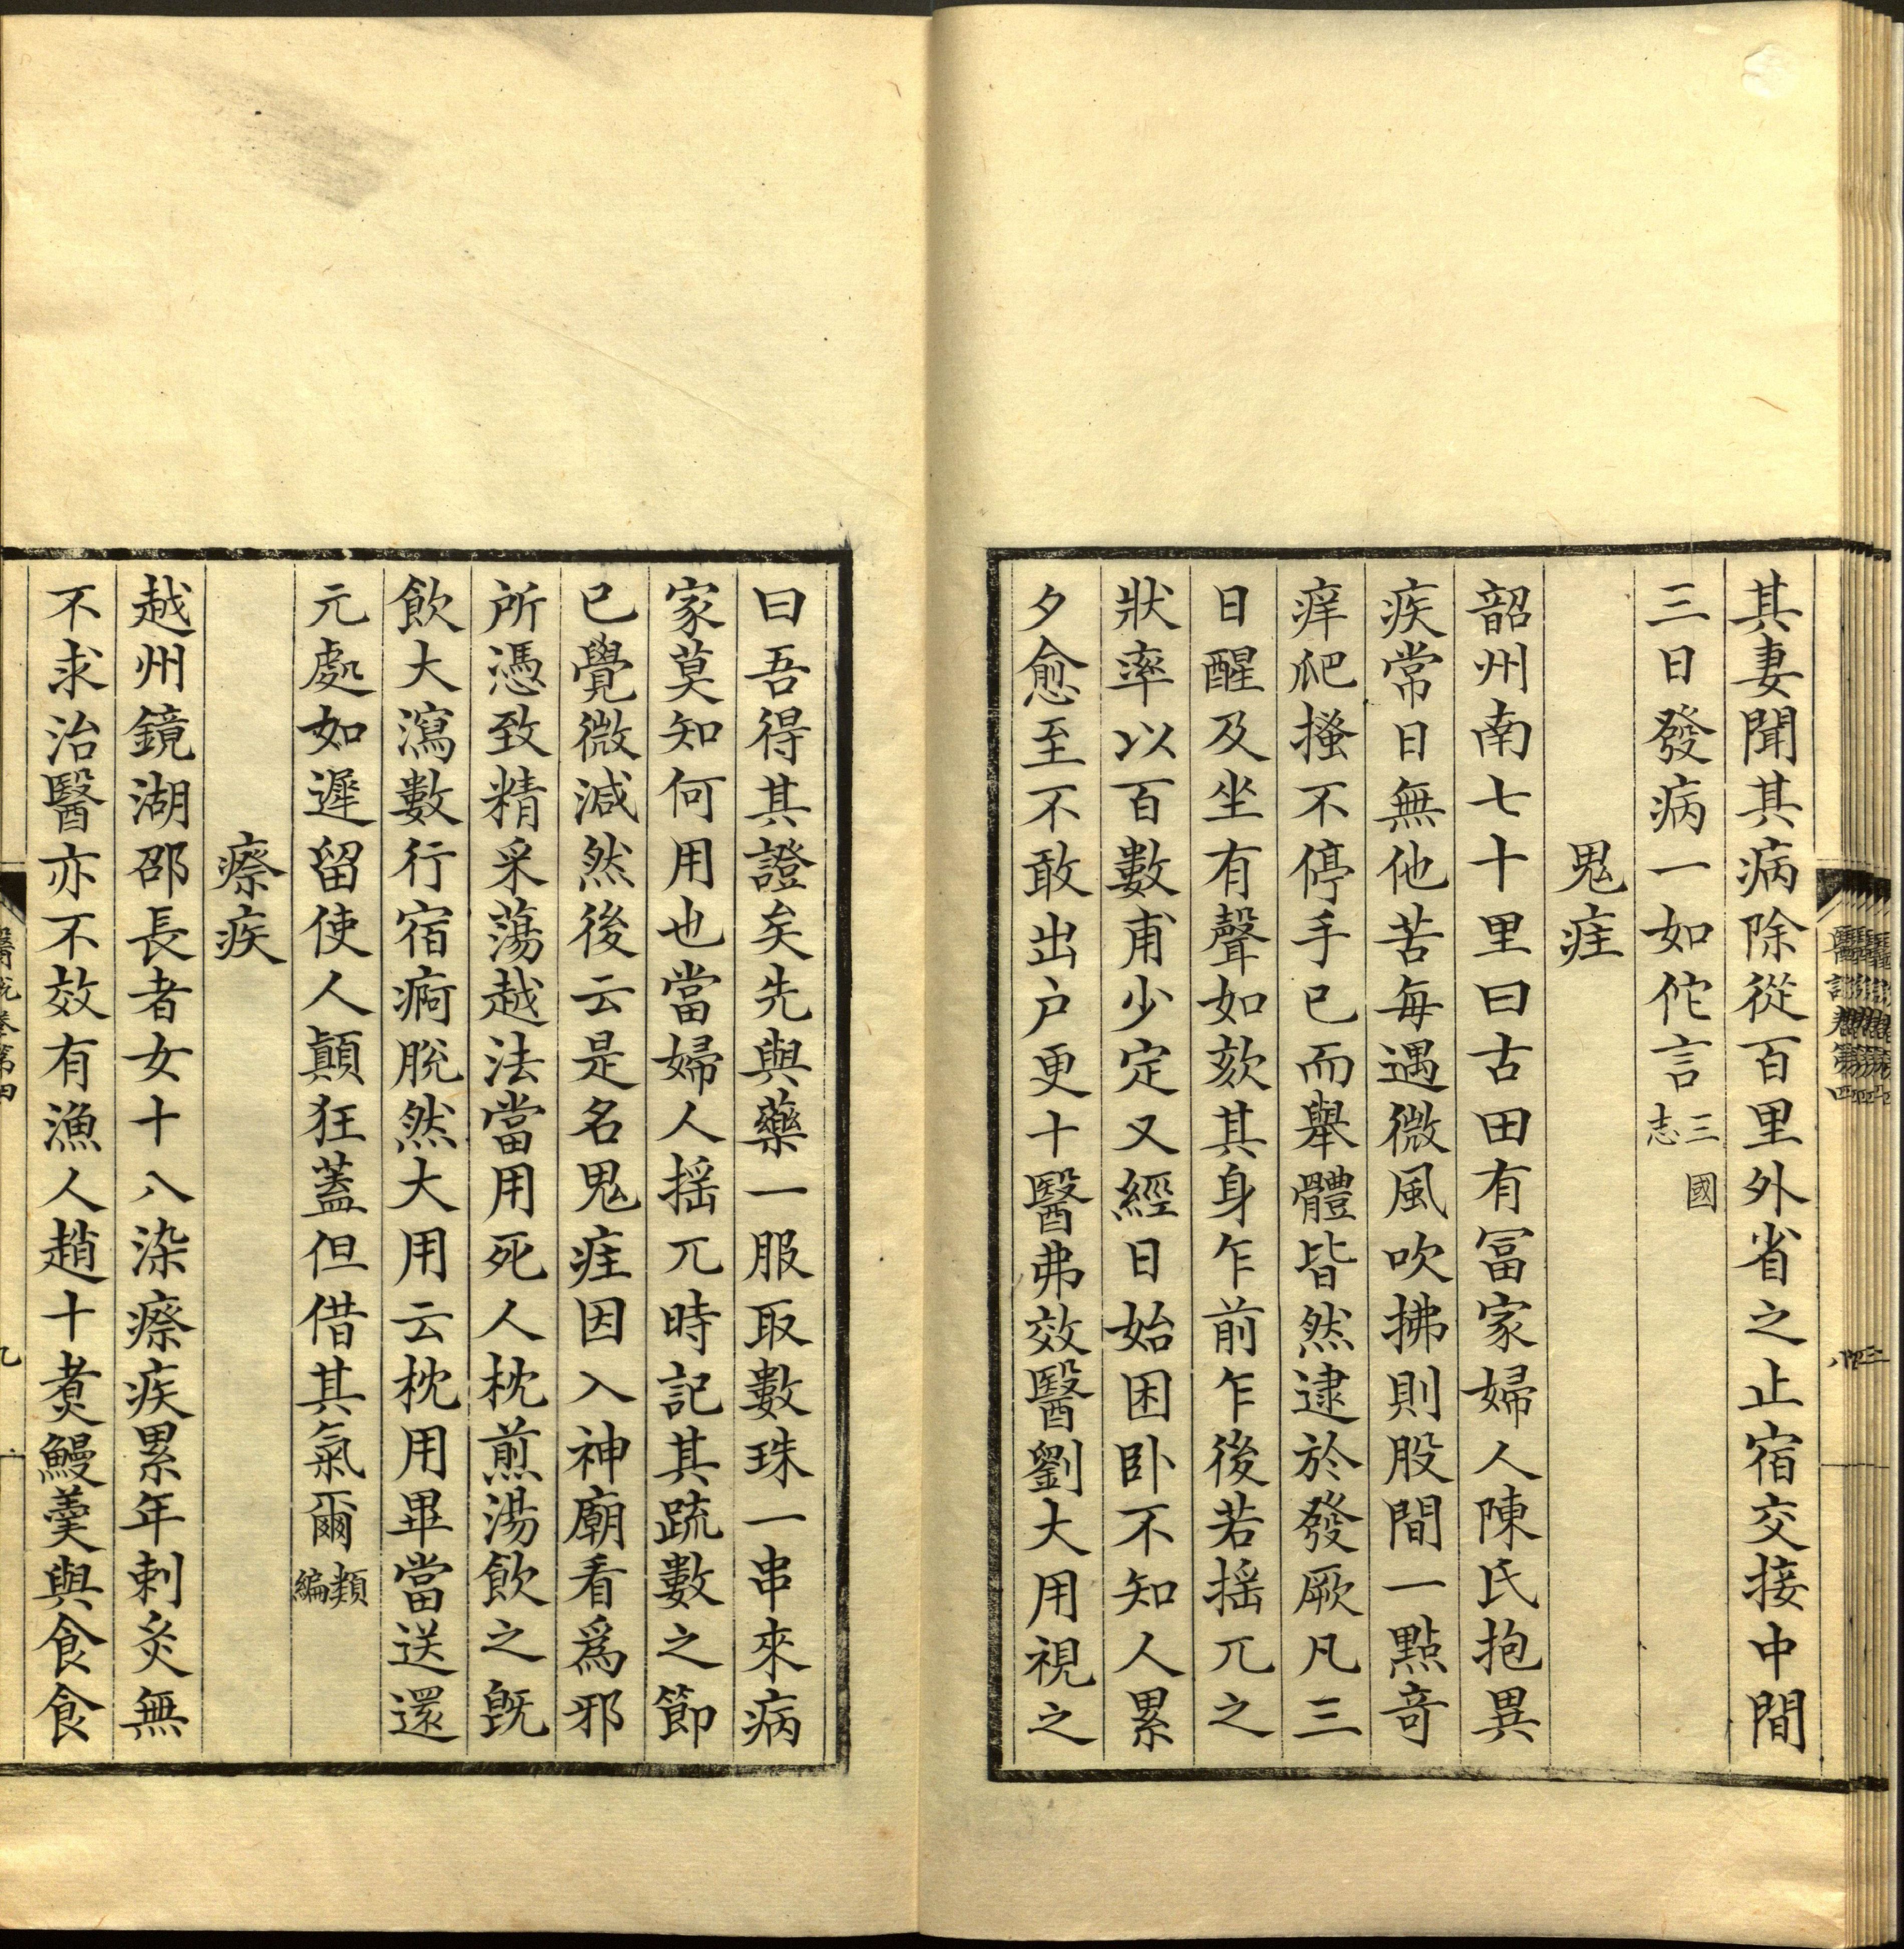 其妻聞其病除從百里外省之止宿交接中間
三日發病一如佗言三國志
鬼疰
韶州南七十里曰古田有冨家婦人陳氏抱異
疾常日無他苦每遇微風吹拂則股間一點竒
痒爬搔不停手已而舉體皆然逮於發厥凡三
日醒及坐有聲如欬其身乍前乍後若揺兀之
狀率以百數甫少定又經日始困卧不知人累
夕愈至不敢出户更十醫弗效醫劉大用視之
曰吾得其證矣先與藥一服取數珠一串來病
家莫知何用也當婦人揺兀時記其䟽數之節
已覺微減然後云是名鬼疰因入神廟看爲邪
所憑致精采蕩越法當用死人枕煎湯飲之旣
飲大瀉數行宿痾脫然大用云枕用畢當送還
元處如遲留使人顛狂蓋但借其氣爾類編
瘵疾
越州鏡湖邵長者女十八染瘵疾累年刺灸無
不求治醫亦不效有漁人趙十煑鰻羹與食食